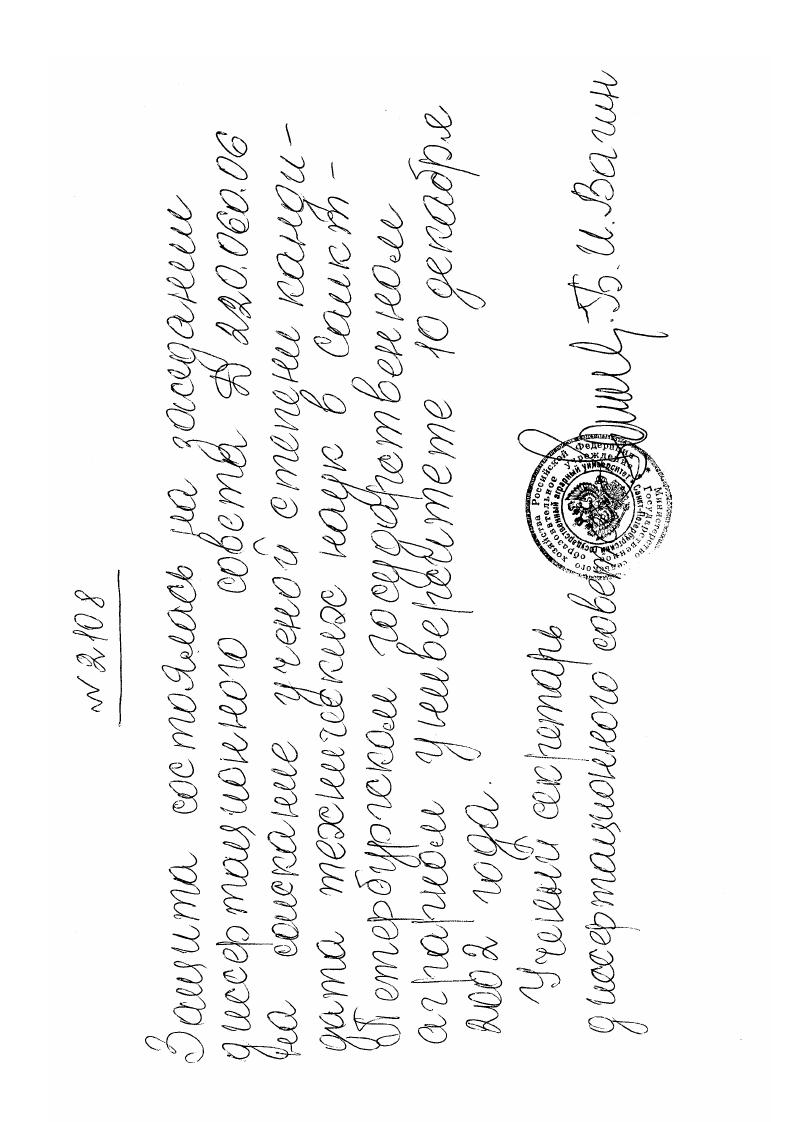 № 2108
Защита состоялась на заседании
диссертационного совета Д 220.060.06
на соискание ученой степени канди-
дата технических наук в Санкт-
Петербургском государственном
аграрном университете 10 декабря
2002 года.
Ученый секретарь
диссертационного совета Б. И. Вагин
Министерство сельского хозяйства Российской Федерации
Государственное образовательное учреждение
Санкт-Петербургский государственный аграрный университет